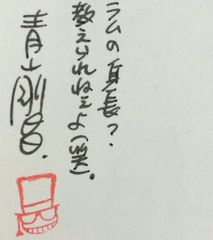 ラムの身長？
教えられねぇよ(笑)。
青山剛昌.